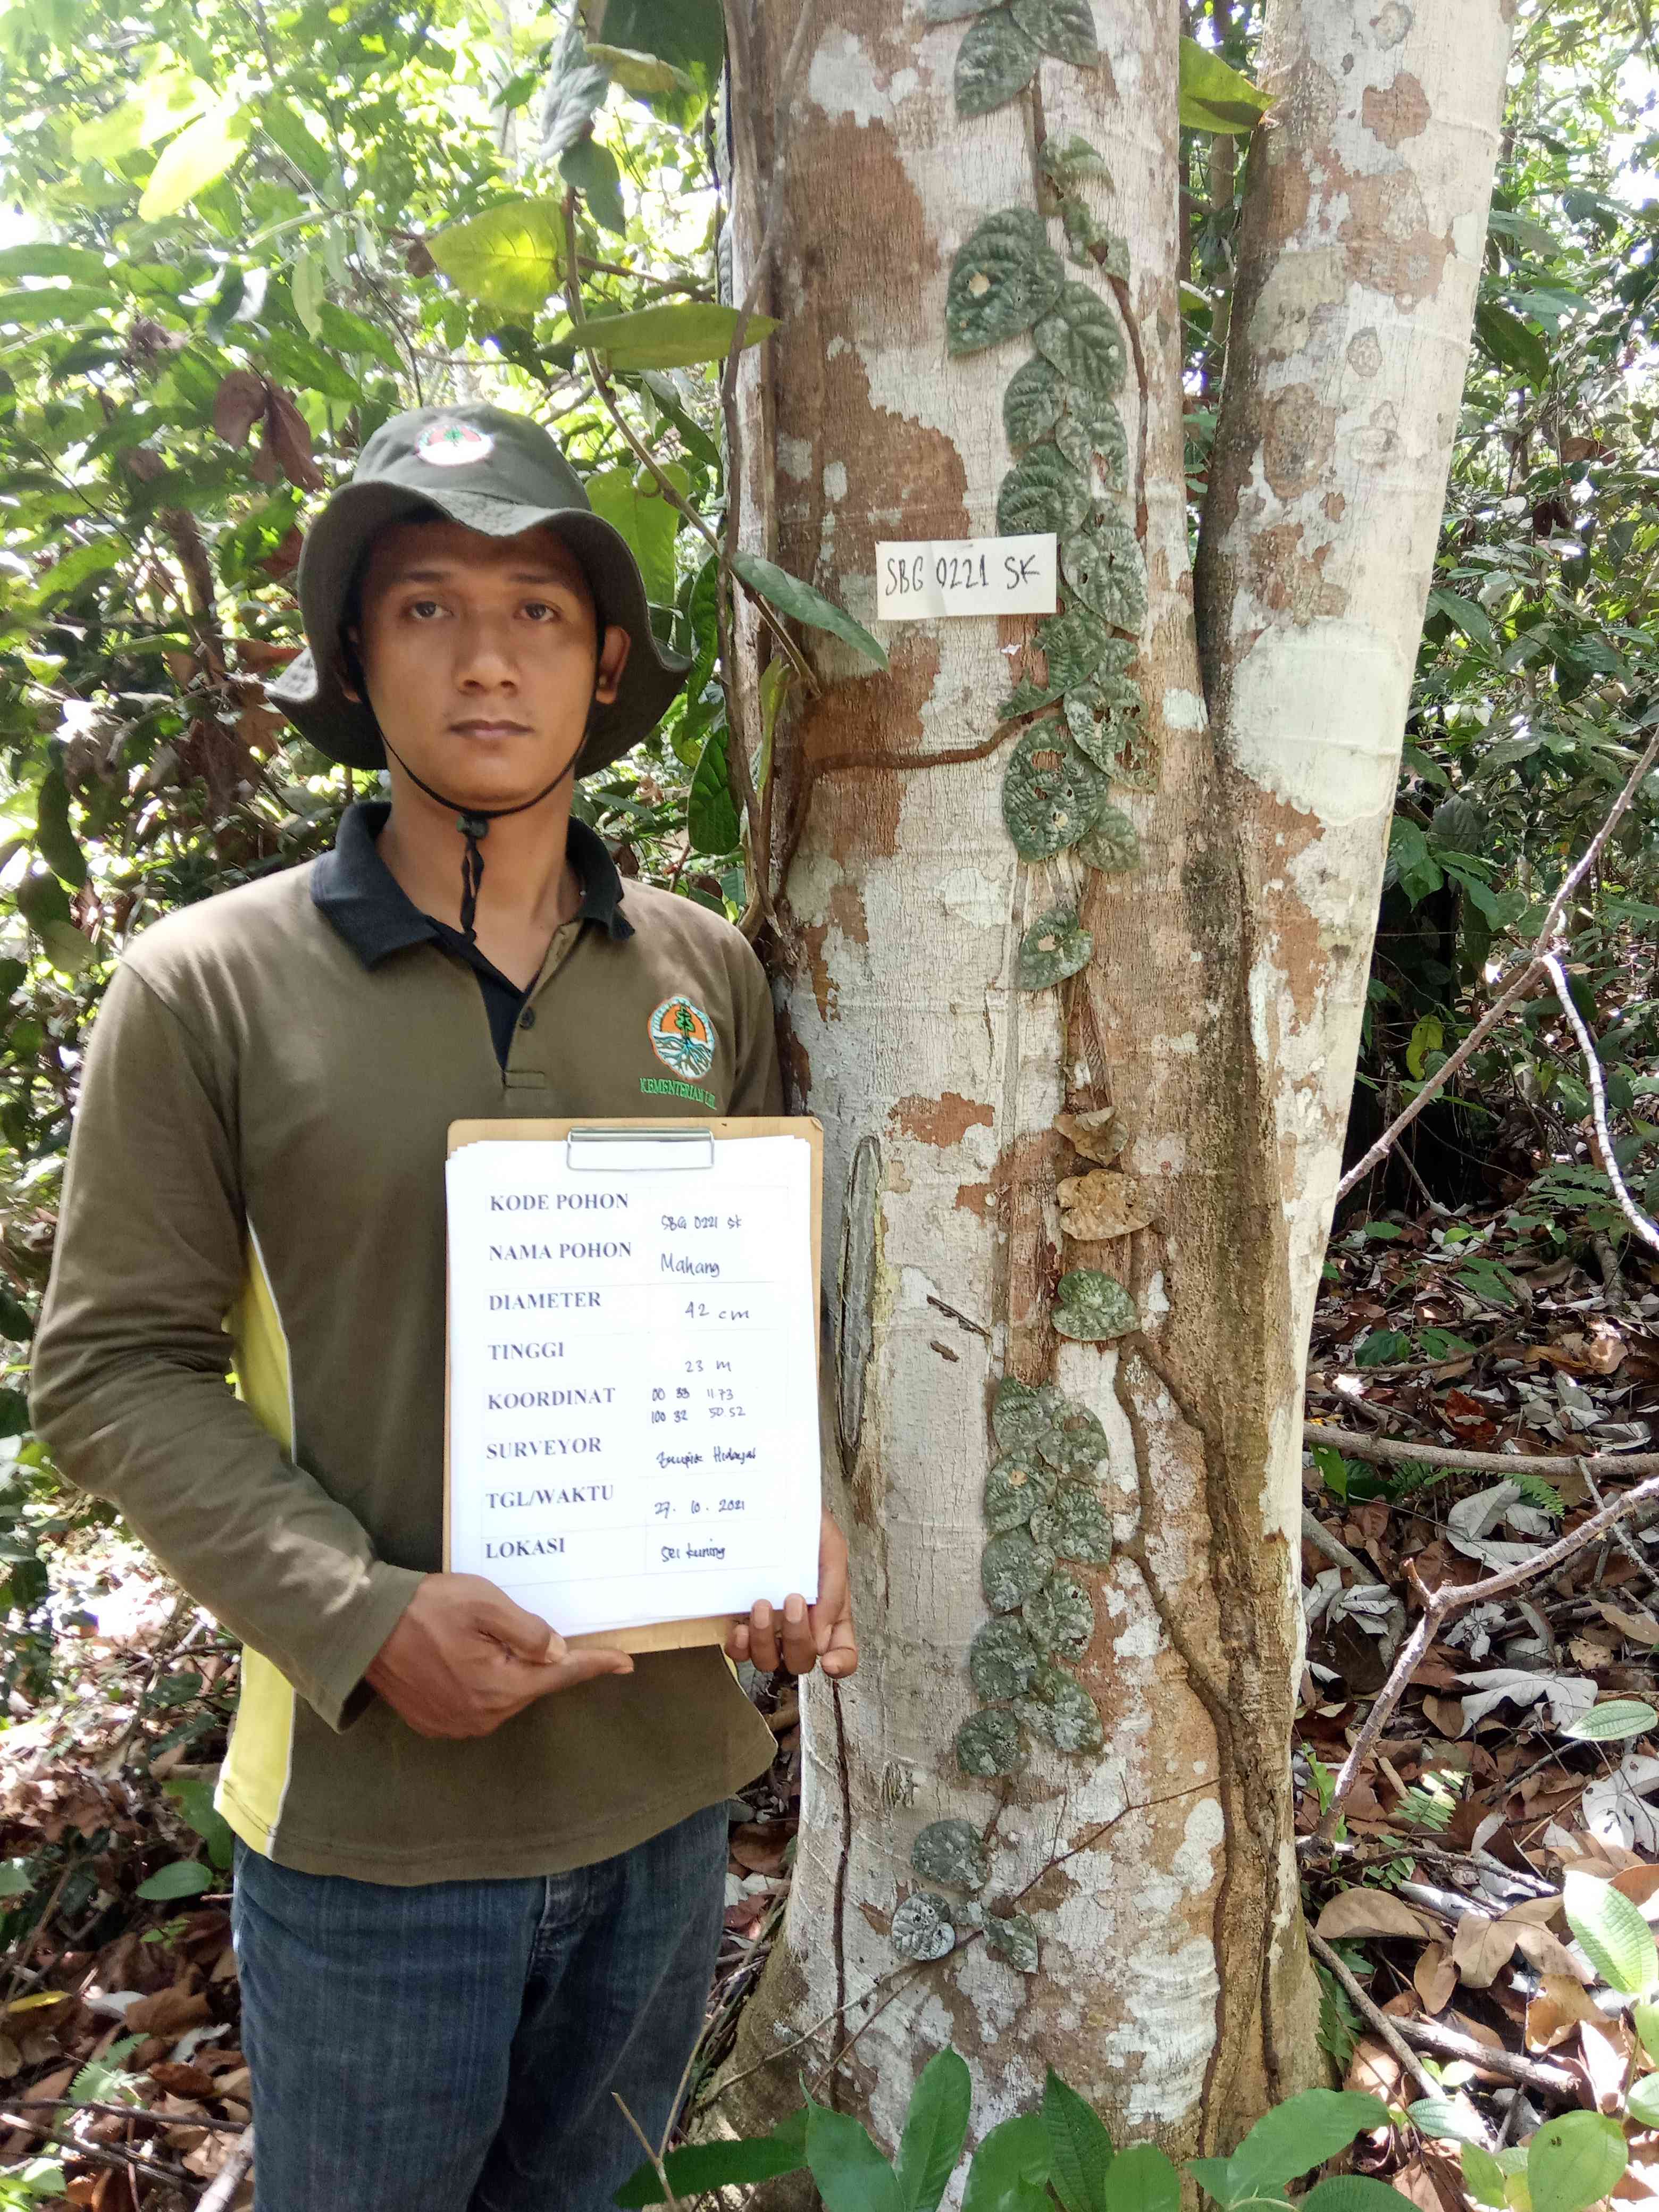 SBG 0221 SK
KEMENTERIAN
KODE POHON SBG 0221 SK
NAMA POHON Mahang
DIAMETER 42 cm
TINGGI 23 m
KOORDINAT 00 33 11.73
100 32 50.52
SURVEYOR Hidayat
TGL/WAKTU 27. 10. 2021
LOKASI Sei Kuning